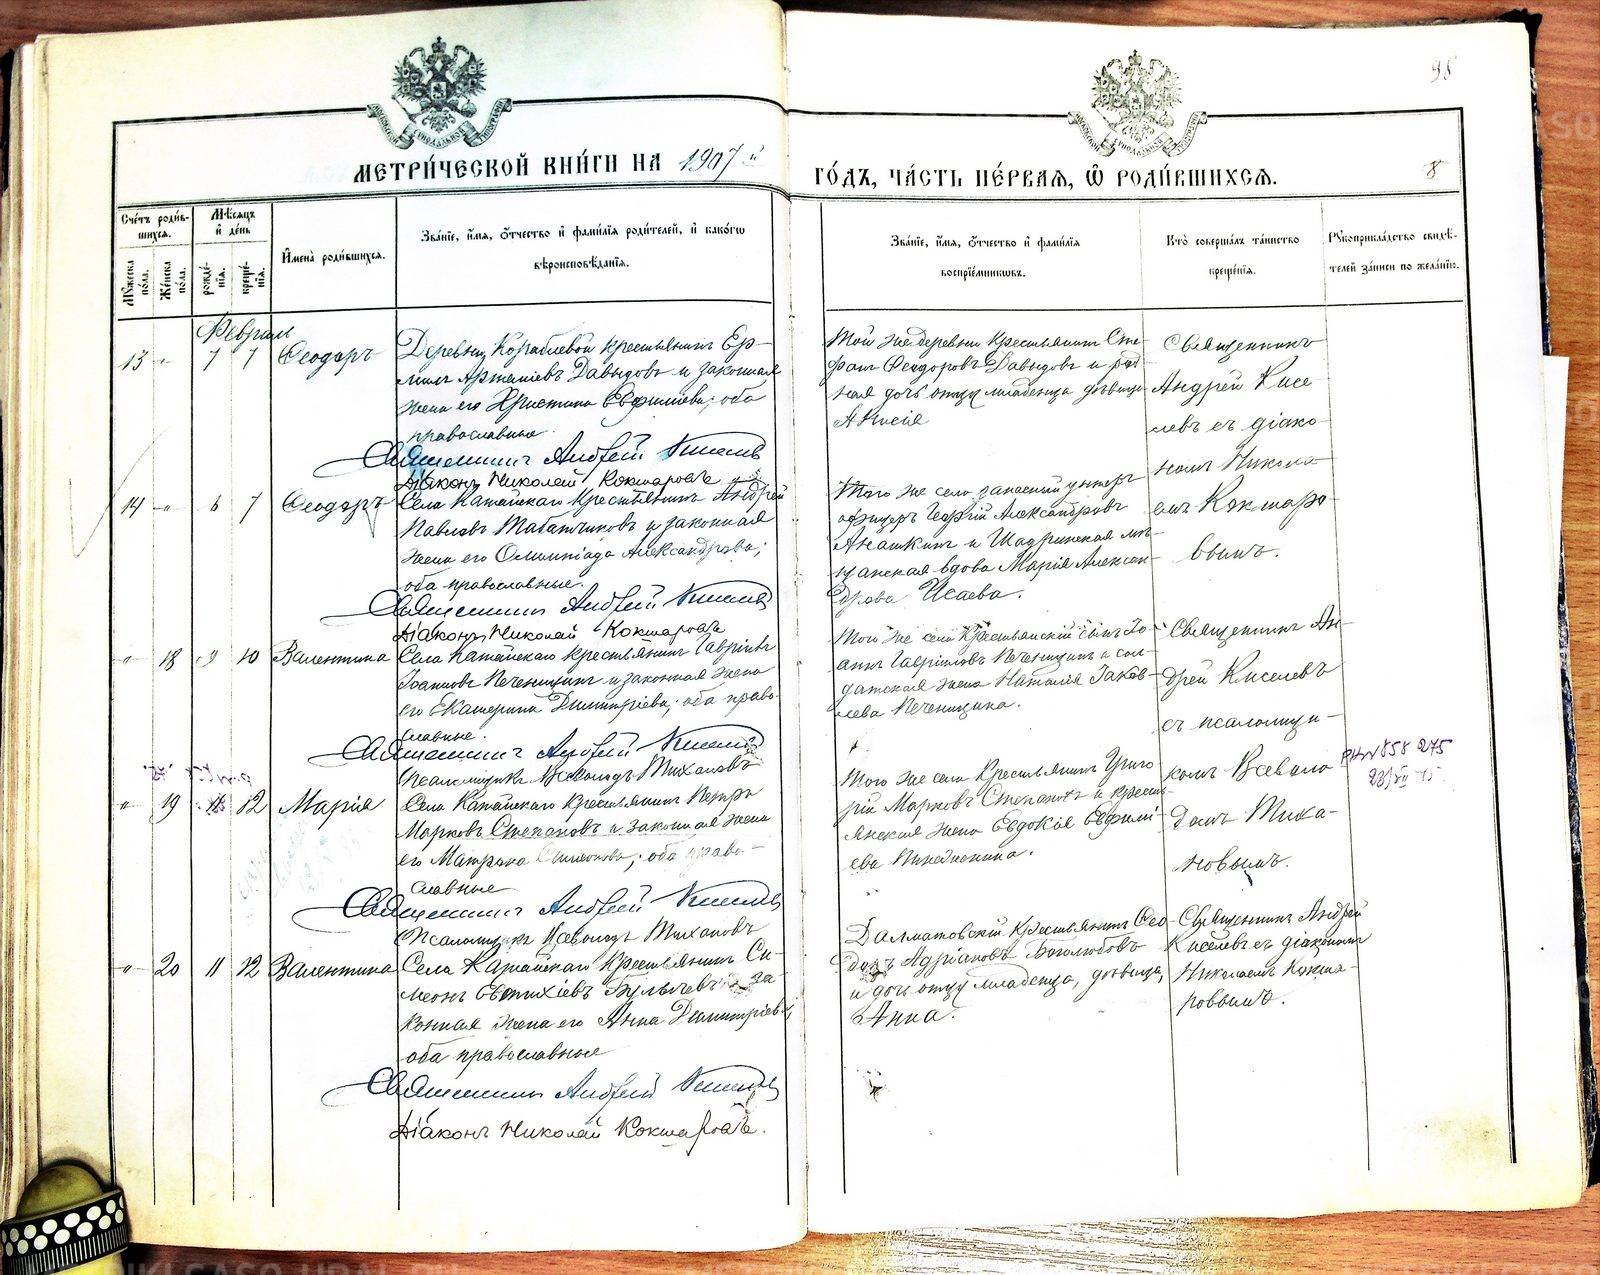 98
МЕТРИ́ЧЕСКОЙ КНИ́ГИ НА 1907й ГО́ДЪ, ЧА́СТЬ ПЕ́РВАЯ, Ѿ РОДИ́ВШИХСЯ.
8
Сче́тъ роди́в-
шихся.
Мѣ́сяцъ
и҆ де́нь
Му́жеска по́ла.
Же́нска по́ла.
рожде́-
нїя.
креще́-
нїя.
И҆мена̀ роди́вшихся.
Зва́нїе, и҆́мя, ѻ҆́тчество и҆ фами́лїя роди́телей, и҆ како́гѡ
вѣроисповѣ́данїя.
Зва́нїе, и҆́мя, ѻ҆́тчество и҆ фами́лїя
воспрїе́мникѡвъ.
Кто̀ соверша́лъ та́инство
креще́нїя.
Рꙋкоприкла́дство свидѣ́-
телей за́писи по жела́нїю.
Февраль
13 " 7 7 Ѳеодоръ
Деревни Кораблевой крестьянинъ Ер-
милъ Артемiевъ Давыдовъ и законная
жена его Христина Евфимiева; оба
православные.
Священникъ Андрей Киселевъ
Дiаконъ Николай Кокшаровъ
Той же деревни крестьянинъ Сте-
фанъ Ѳеодоровъ Давыдовъ и род-
ная дочь отцу младенца дѣвица
Анисiя
Священникъ
Андрей Кисе
левъ съ дiако-
номъ Никола-
емъ Кокшаро
вымъ.
14 " 6 7 Ѳеодоръ
Села Катайскаго крестьянинъ Андрей
Павловъ Табатчиковъ и законная
жена его Олимпiада Александрова;
оба православные.
Священникъ Андрей Киселевъ
Дiаконъ Николай Кокшаровъ
Того же села запасный унтеръ
офицеръ Георгiй Александровъ
Анашкинъ и Шадринская мѣ-
щанская вдова Марiя Алексан-
дрова Исаева.
" 18 9 10 Валентина
Села Катайскаго крестьянинъ Гаврiилъ
Iоанновъ Печеницинъ и законная жена
его Екатерина Димитрiева; оба право-
славные.
Священникъ Андрей Киселевъ
Псаломщикъ Всеволодъ Тихановъ
Того же села крестьянскiй сынъ Iо-
аннъ Гаврiиловъ Печеницинъ и сол-
датская жена Наталiя Iаков-
лева Печеницина.
Священникъ Ан-
дрей Киселевъ
съ псаломщи-
комъ Всеволо
домъ Тиха-
новымъ.
" 19 12 Марiя
Села Катайскаго крестьянинъ Петръ
Марковъ Степановъ и законная жена
его Матрона Симеонова; оба право-
славные
Священникъ Андрей Киселевъ
Псаломщикъ Всеволодъ Тихановъ
Того же села крестьянинъ Григо
рiй Марковъ Степановъ и кресть-
янская жена Евдокiя Евфимi-
ева
858 275
" 20 11 12 Валентина
Села Катайскаго крестьянинъ Си-
меонъ Евтихiевъ Булычевъ и за
конная жена его Анна Димитрiева;
оба православные
Священникъ Андрей Киселевъ
Дiаконъ Николай Кокшаровъ.
Далматовскiй крестьянинъ Ѳео-
доръ Адрiановъ Боголюбовъ
и дочь отцу младенца, дѣвица,
Анна.
Священникъ Андрей
Киселевъ съ дiакономъ
Николаемъ Кокша-
ровымъ.